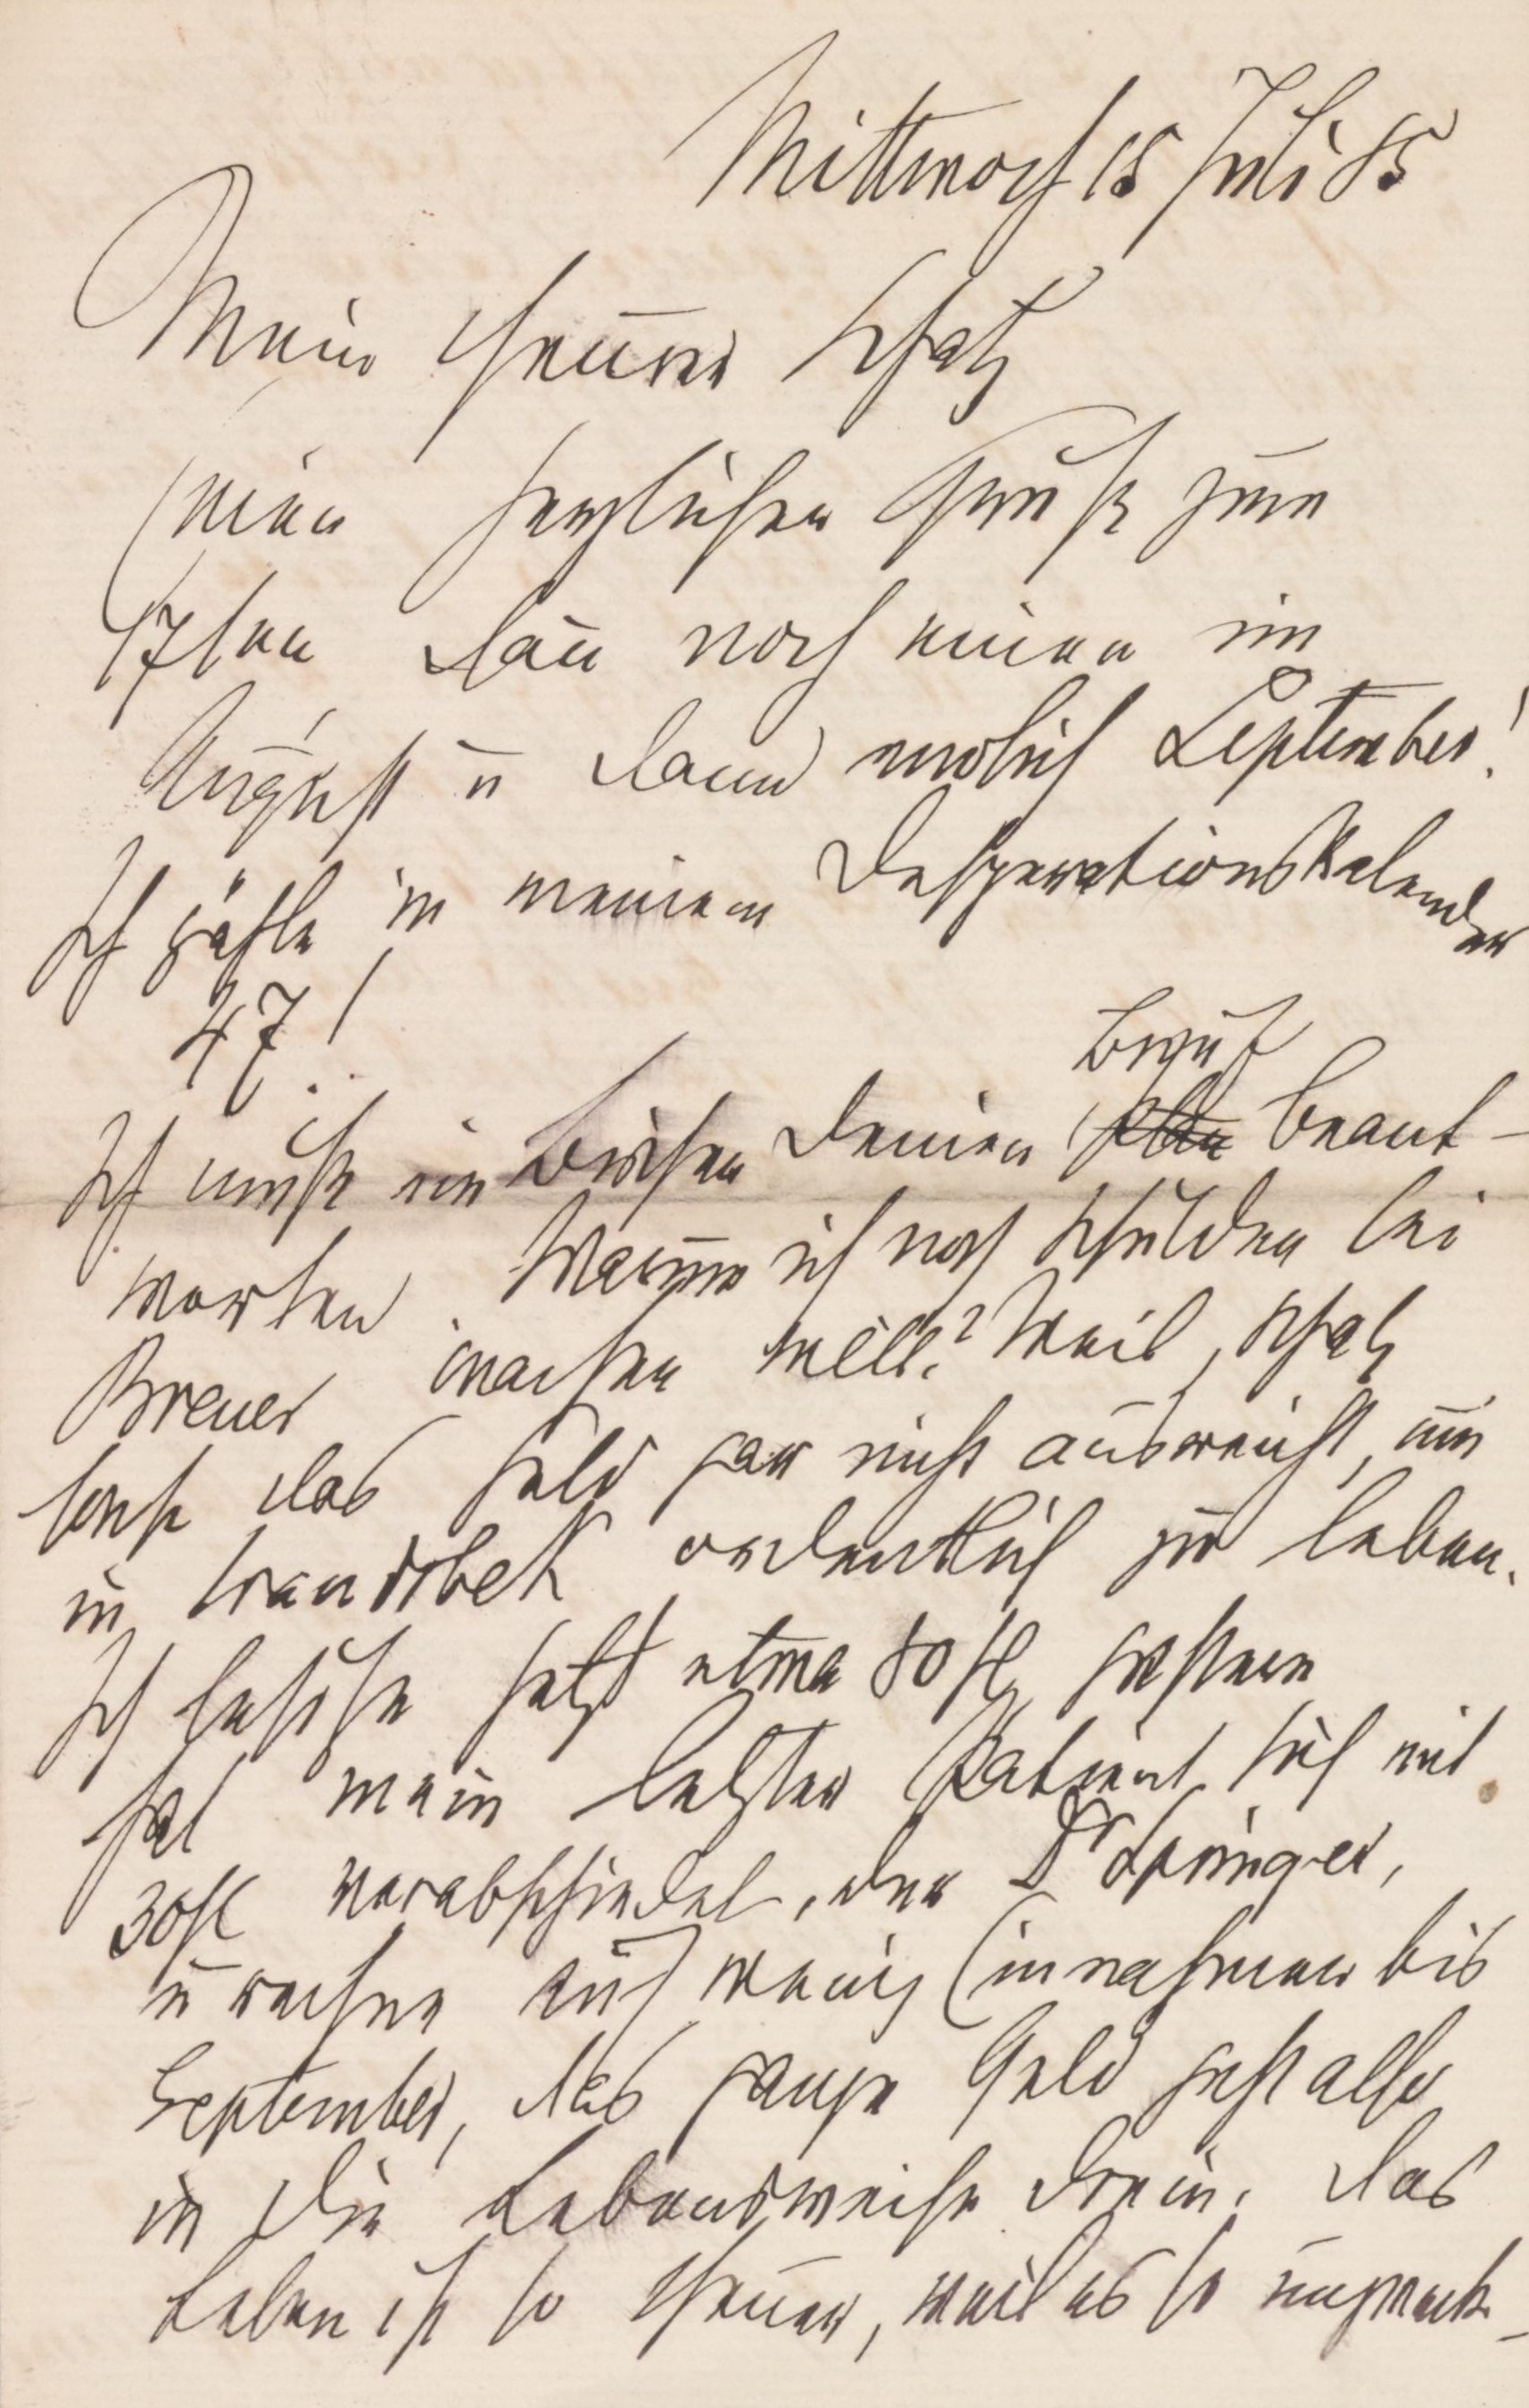 Mittwoch 15 Juli 85
Mein theurer Schatz
Einen herzlichen Gruß zum
17ten dañ noch einen im
August u dann endlich September!
Ich zähle in meinem Desperationskalender
47!
Ich muß ein bischen Deinen Brief beant-
worten. Warum ich noch Schulden bei
Breuer machen will? Weil, Schatz
sonst das Geld gar nicht ausreicht, um
in Wandsbek ordentlich zu leben.
Ich besitze jetzt etwa 80 fl, gestern
hat mein letzter Patient sich mit
30 fl verabschiedet, der Dr Springer,
u rechne auf wenig Einnahmen bis
September, das ganze Geld geht also
in die Lebensweise drein. Das
Leben ist so theuer, weil es so